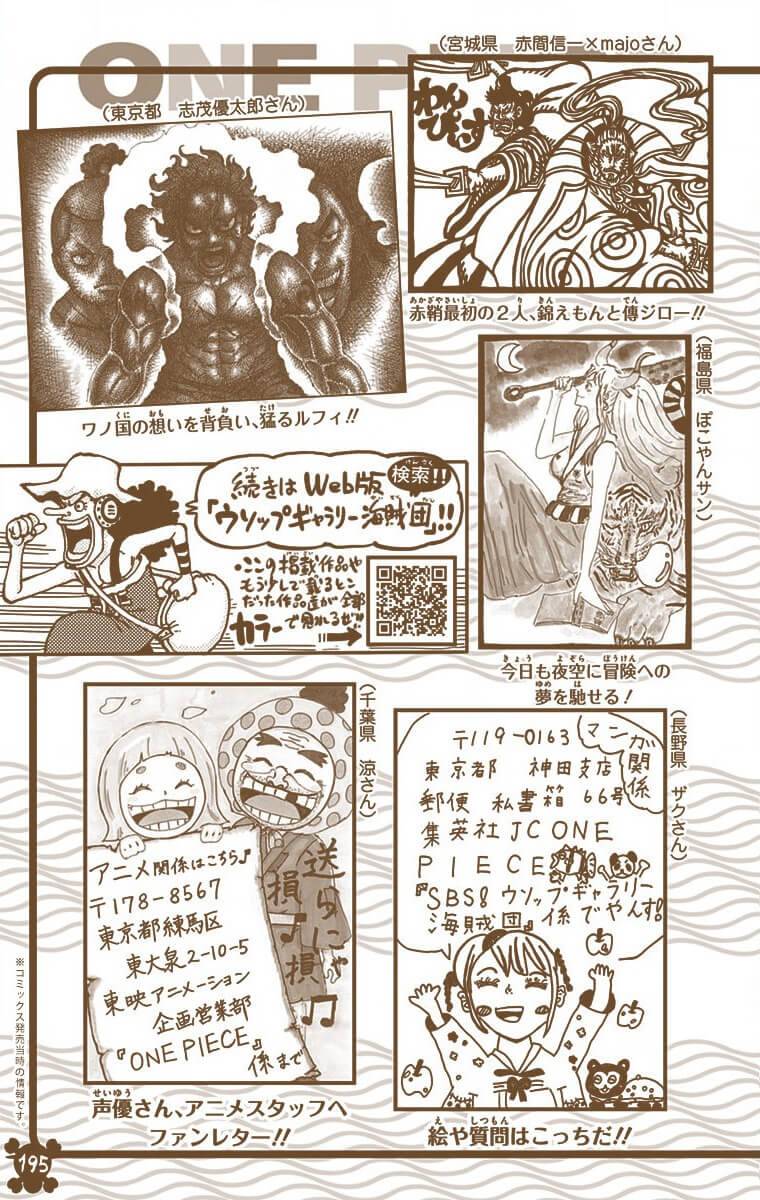 ONE P
(宮城県　赤間信一×majoさん)
(東京都　志茂優太郎さん)
わん
ぴぃす
赤鞘最初の２人、錦えもんと傳ジロー!!
ワノ国の想いを背負い、猛るルフィ!!
(福島県　ぽこやんサン)
続きはWeb版 検索!!
「ウソップギャラリー海賊団」!!
・ここの掲載作品や
もう少しで載るとこ
だった作品達が全部
カラーで見れるぜ!!
今日も夜空に冒険への
夢を馳せる！
(千葉県　涼さん)
アニメ関係はこちら♪
〒178-8567
東京都練馬区
東大泉2-10-5
東映アニメーション
企画営業部
『ONE PIECE』
係まで
送らにゃ
損♪損♫
声優さん、アニメスタッフへ
ファンレター!!
(長野県　ザクさん)
マンガ関係
〒119-0163
東京都　神田支店
郵便　私書箱　66号
集英社JC ONE
PIECE
『SBS&ウソップギャラリー
海賊団』係でやんす!
絵や質問はこっちだ!!
※コミックス発売当時の情報です。
195